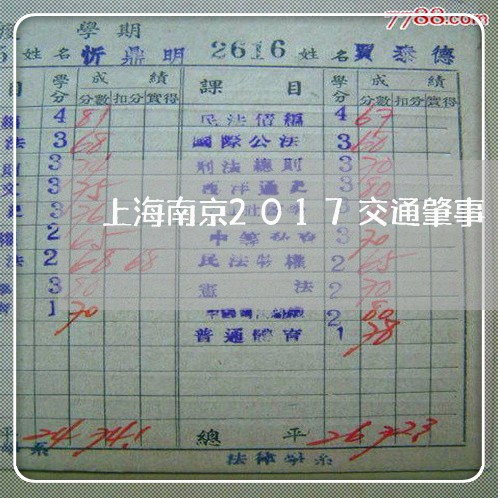 7788.com
學期
姓名 忻鼎明 2616 姓名 賈泰德
目 學分 成績 課目 學分 成績
分數 扣分 實得 分數 扣分 實得
4 81 民法債編 4 67
法 3 68 國際公法 3 60
則 3 刑法總則 3 70
文 3 75 西洋通史 3 80
上海南京2017交通肇事
2 65 3 70
法 2 68 68 民法物權 2 65
3 80 憲法 2 70
1 70 2 80
普通體育 1 78
平 24 74.1 總平 26 72.3
系 法律學系